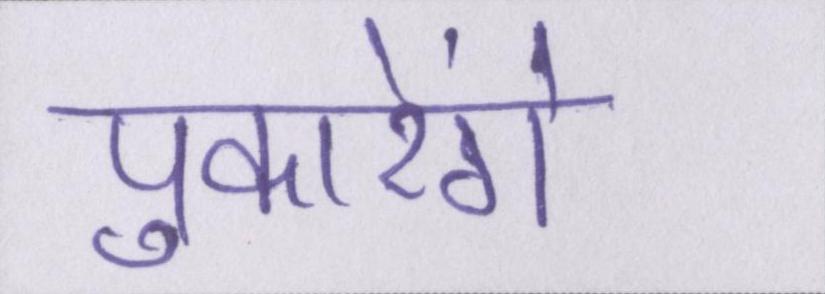 पुकारेंगे